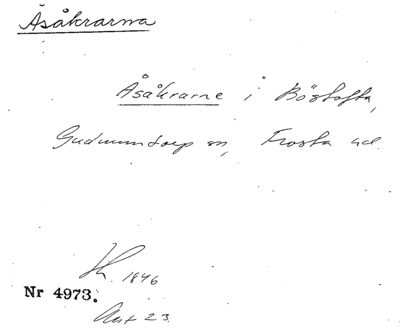 Åsåkrarna
Åsåkrarne i Böstofta,
Gudmuntorp sn, Frosta hd.
1846
Nr 4973.
23.